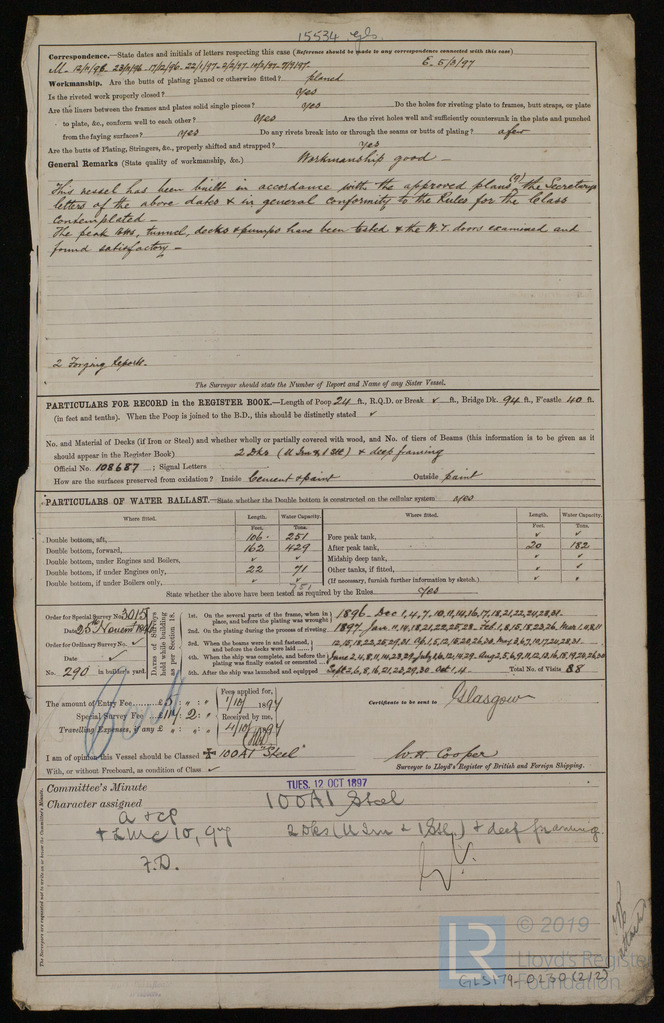 15534 Gls.
Correspondence.—State dates and initials of letters respecting this case (Reference should be made to any correspondence connected with this case)
M. 12/11/96 23/11/96 17/12/96 22/1/97 2/2/97 19/2/97 7/9/97. E. 5/3/97
Workmanship. Are the butts of plating planed or otherwise fitted? planed
Is the riveted work properly closed? Yes
Are the liners between the frames and plates solid single pieces? yes Do the holes for riveting plate to frames, butt straps, or plate
to plate, &c., conform well to each other? Yes Are the rivet holes well and sufficiently countersunk in the plate and punched
from the faying surfaces? Yes Do any rivets break into or through the seams or butts of plating? a few
Are the butts of Plating, Stringers, &c., properly shifted and strapped? Yes
General Remarks (State quality of workmanship, &c.) Workmanship good —
This vessel has been built in accordance with the approved plans (9), the Secretarys
letters of the above dates & in general conformity to the Rules for the Class
contemplated —
The peak bhs, tunnel, decks & pumps have been tested & the W.T. doors examined and
found satisfactory —
2 Forging Reports.
The Surveyor should state the Number of Report and Name of any Sister Vessel.
PARTICULARS FOR RECORD in the REGISTER BOOK.—Length of Poop 24 ft., R.Q.D. or Break ✓ ft., Bridge Dk. 94 ft., F'castle 40 ft.
(in feet and tenths). When the Poop is joined to the B.D., this should be distinctly stated ✓
No. and Material of Decks (if Iron or Steel) and whether wholly or partially covered with wood, and No. of tiers of Beams (this information is to be given as it
should appear in the Register Book) 2 Dks (U Irn & 1 Stl) & deep framing
Official No. 108687 ; Signal Letters
How are the surfaces preserved from oxidation? Inside Cement & paint Outside paint
PARTICULARS OF WATER BALLAST.—State whether the Double bottom is constructed on the cellular system yes
Where fitted. Length. Water Capacity. Where fitted. Length. Water Capacity.
Feet. Tons. Feet. Tons.
Double bottom, aft, 106 251 Fore peak tank, ✓ ✓
Double bottom, forward, 162 429 After peak tank, 20 182
Double bottom, under Engines and Boilers, ✓ ✓ Midship deep tank, ✓ ✓
Double bottom, if under Engines only, 22 71 Other tanks, if fitted, ✓ ✓
Double bottom, if under Boilers only, ✓ ✓ (If necessary, furnish further information by sketch.) ✓ ✓
751
State whether the above have been tested as required by the Rules Yes
Order for Special Survey No. 3015
Date 25th Novem 1896
Order for Ordinary Survey No. ✓
Date ✓
No. 290 in builder's yard.
Dates of Surveys held while building as per Section 18.
1st. On the several parts of the frame, when in place, and before the plating was wrought 1896 - Dec 1, 4, 7, 10, 11, 14, 16, 17, 18, 21, 22, 24, 28, 31.
2nd. On the plating during the process of riveting 1897 Jan. 11, 14, 18, 21, 22, 25, 28. Feb. 1, 8, 15, 18, 23, 26. Mar 1, 4, 8, 11
3rd. When the beams were in and fastened, and before the decks were laid
4th. When the ship was complete, and before the plating was finally coated or cemented
5th. After the ship was launched and equipped Sept 2, 6, 8, 16, 21, 23, 29, 30 Oct 1, 4 Total No. of Visits 88
The amount of Entry Fee £5 : " : "
Special Survey Fee
Travelling Expenses, if any £ " : " : "
Fees applied for,
1/10/1897
Received by me,
4/10/97
Certificate to be sent to Glasgow
I am of opinion this Vessel should be Classed ✠ 100A1 "Steel"
With, or without Freeboard, as condition of Class ✓
W. H. Cooper
Surveyor to Lloyd's Register of British and Foreign Shipping.
TUES. 12 OCT 1897
Committee's Minute
Character assigned 100A1 Steel
a & cp 2 Dks (U Irn & 1 Stl) & deep framing
+ LMC 10, 97
F.D.
The Surveyors are requested not to write on or below the Committee's Minute.
© 2019
LR Lloyd's Register
Foundation
GLS179-0230 (2/2)